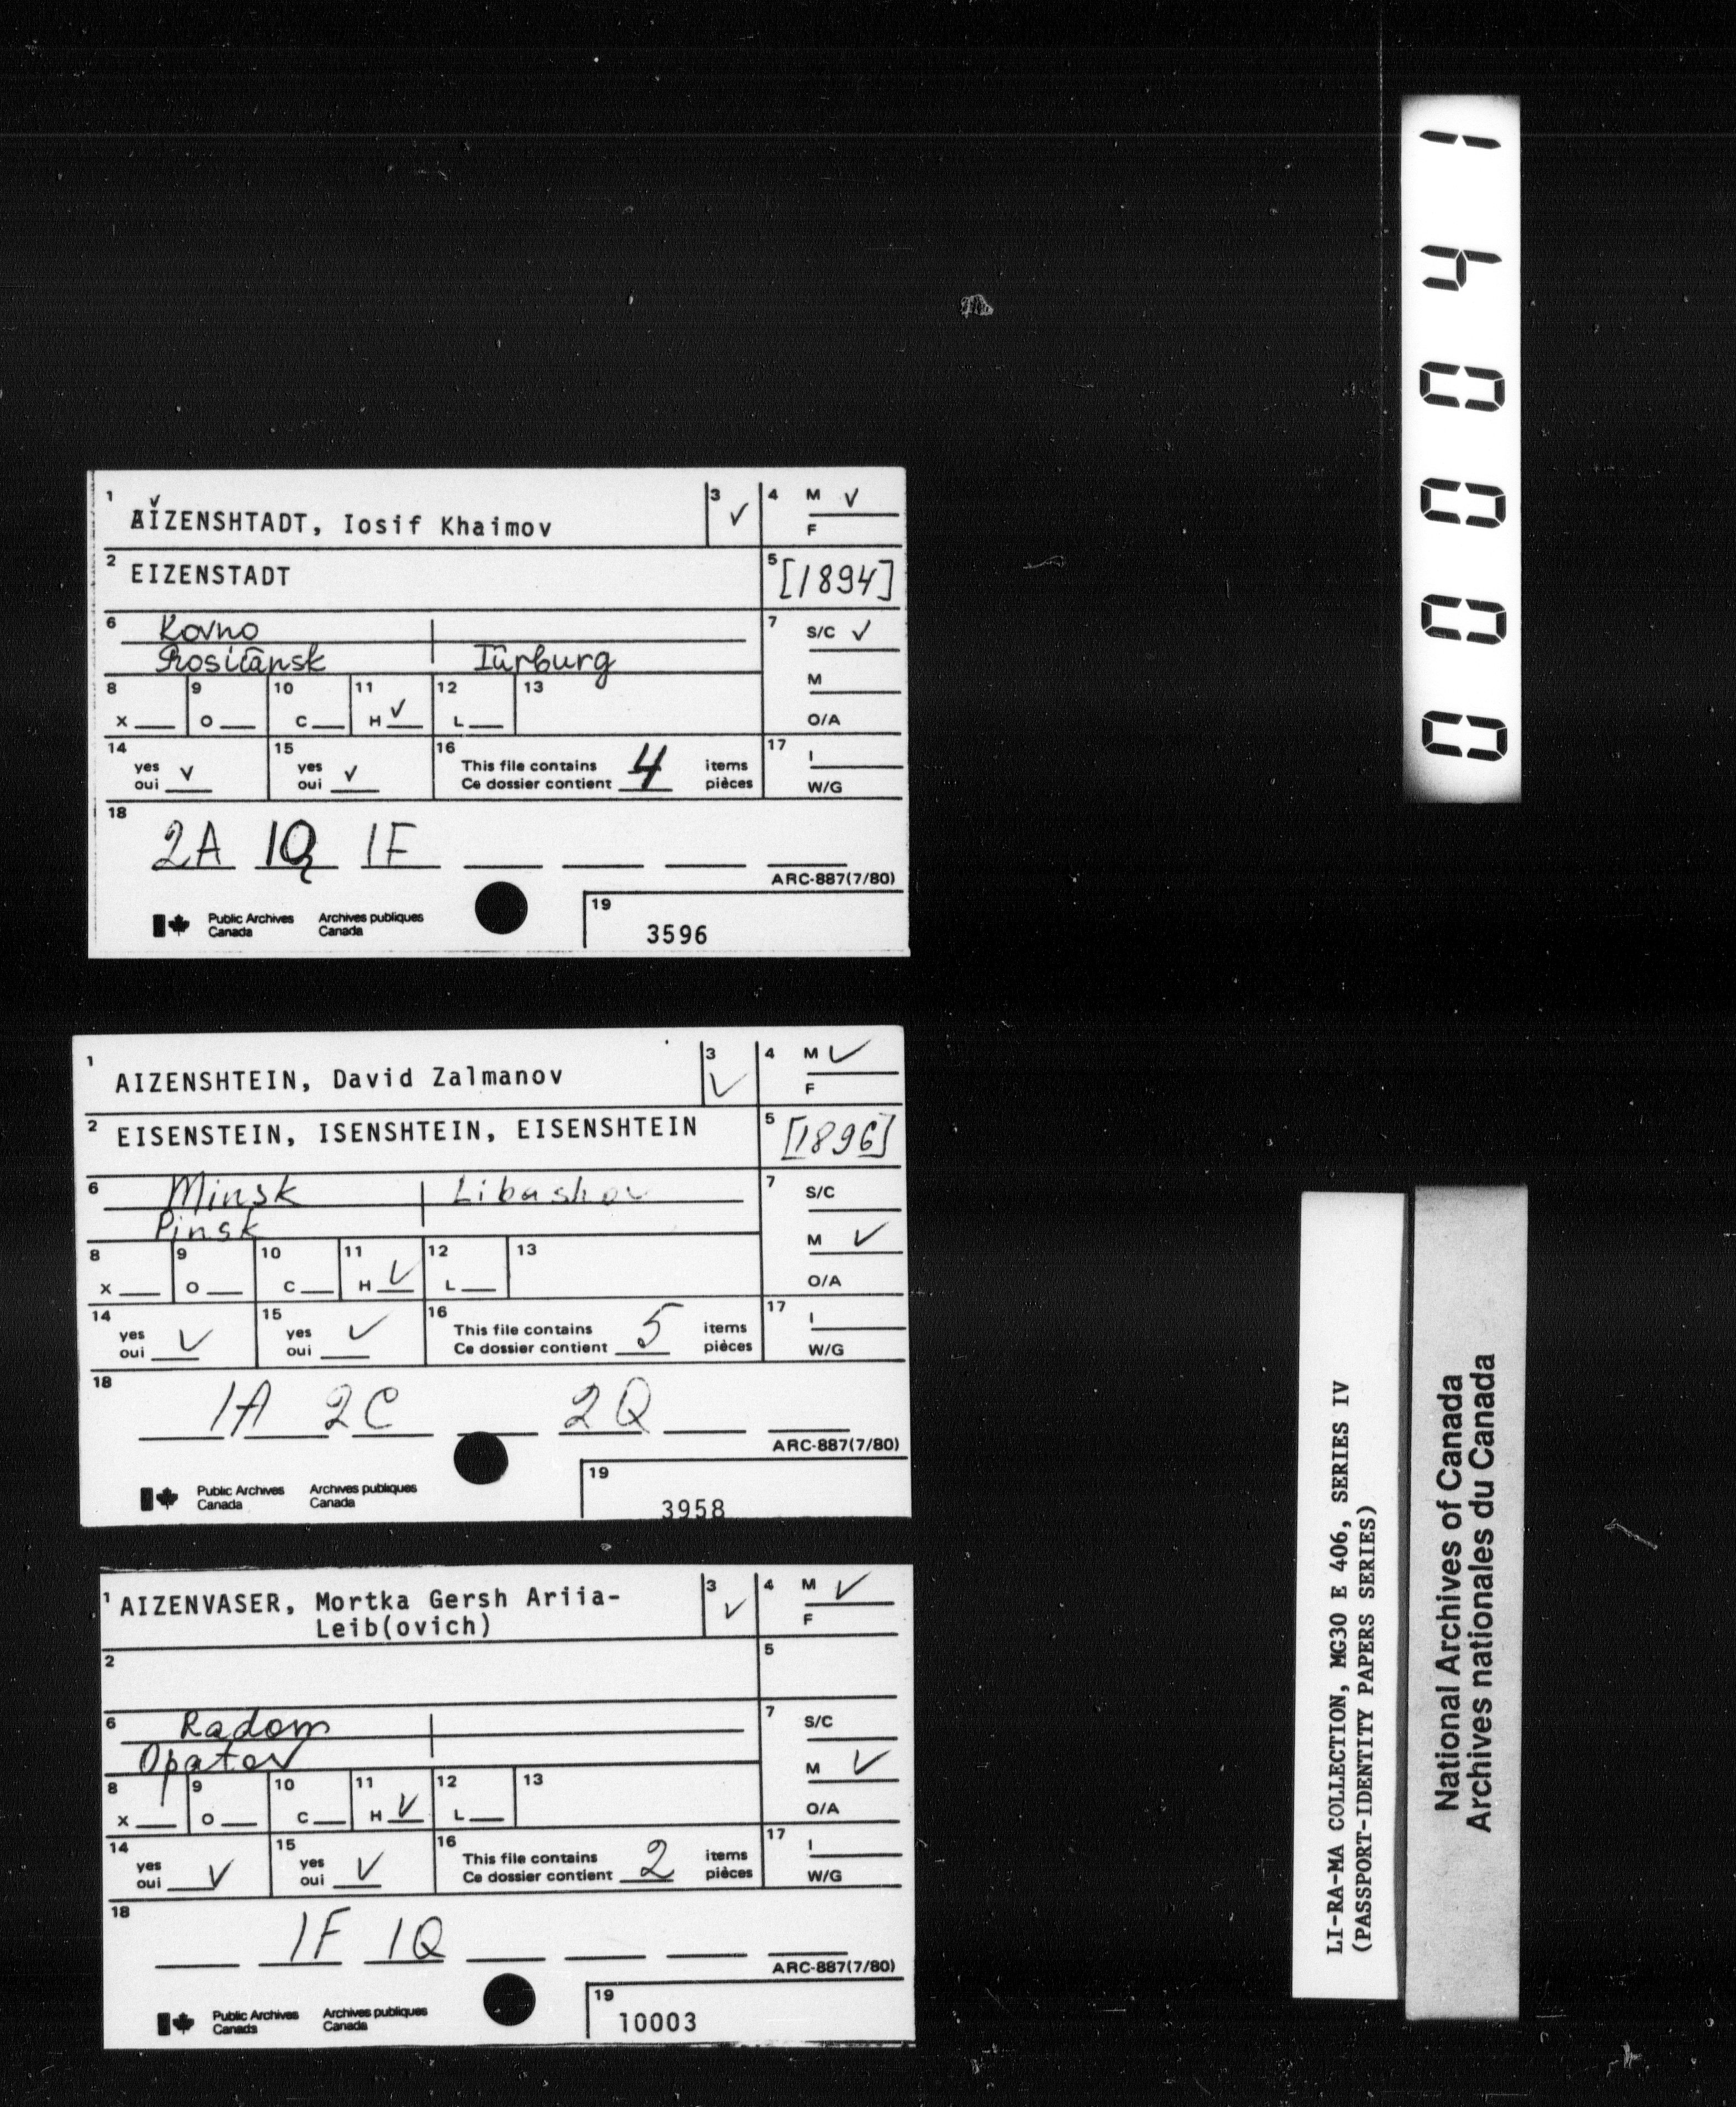 000041
1 AǏZENSHTADT, Iosif Khaimov 3 ✓ 4 M ✓
F
2 EIZENSTADT 5 [1894]
6 Kovno 7 S/C ✓
Iūrburg
M
8 9 10 11 12 13
X O C H ✓ L O/A
14 15 16 17
yes ✓ yes ✓ This file contains 4 items I
oui oui Ce dossier contient pièces W/G
18
2A 1Q 1F
ARC-887(7/80)
Public Archives Archives publiques 19
Canada Canada 3596
1 AIZENSHTEIN, David Zalmanov 3 ✓ 4 M ✓
F
2 EISENSTEIN, ISENSHTEIN, EISENSHTEIN 5 [1896]
6 Minsk Libashov 7 S/C
Pinsk
M ✓
8 9 10 11 12 13
X O C H ✓ L O/A
14 15 16 17
yes ✓ yes ✓ This file contains 5 items I
oui oui Ce dossier contient pièces W/G
18
1A 2C 2Q
ARC-887(7/80)
Public Archives Archives publiques 19
Canada Canada 3958
1 AIZENVASER, Mortka Gersh Ariia- 3 ✓ 4 M ✓
Leib(ovich) F
2 5
6 Radom 7 S/C
Opatov
M ✓
8 9 10 11 12 13
X O C H ✓ L O/A
14 15 16 17
yes ✓ yes ✓ This file contains 2 items I
oui oui Ce dossier contient pièces W/G
18
1F 1Q
ARC-887(7/80)
Public Archives Archives publiques 19
Canada Canada 10003
LI-RA-MA COLLECTION, MG30 E 406, SERIES IV
(PASSPORT-IDENTITY PAPERS SERIES)
National Archives of Canada
Archives nationales du Canada